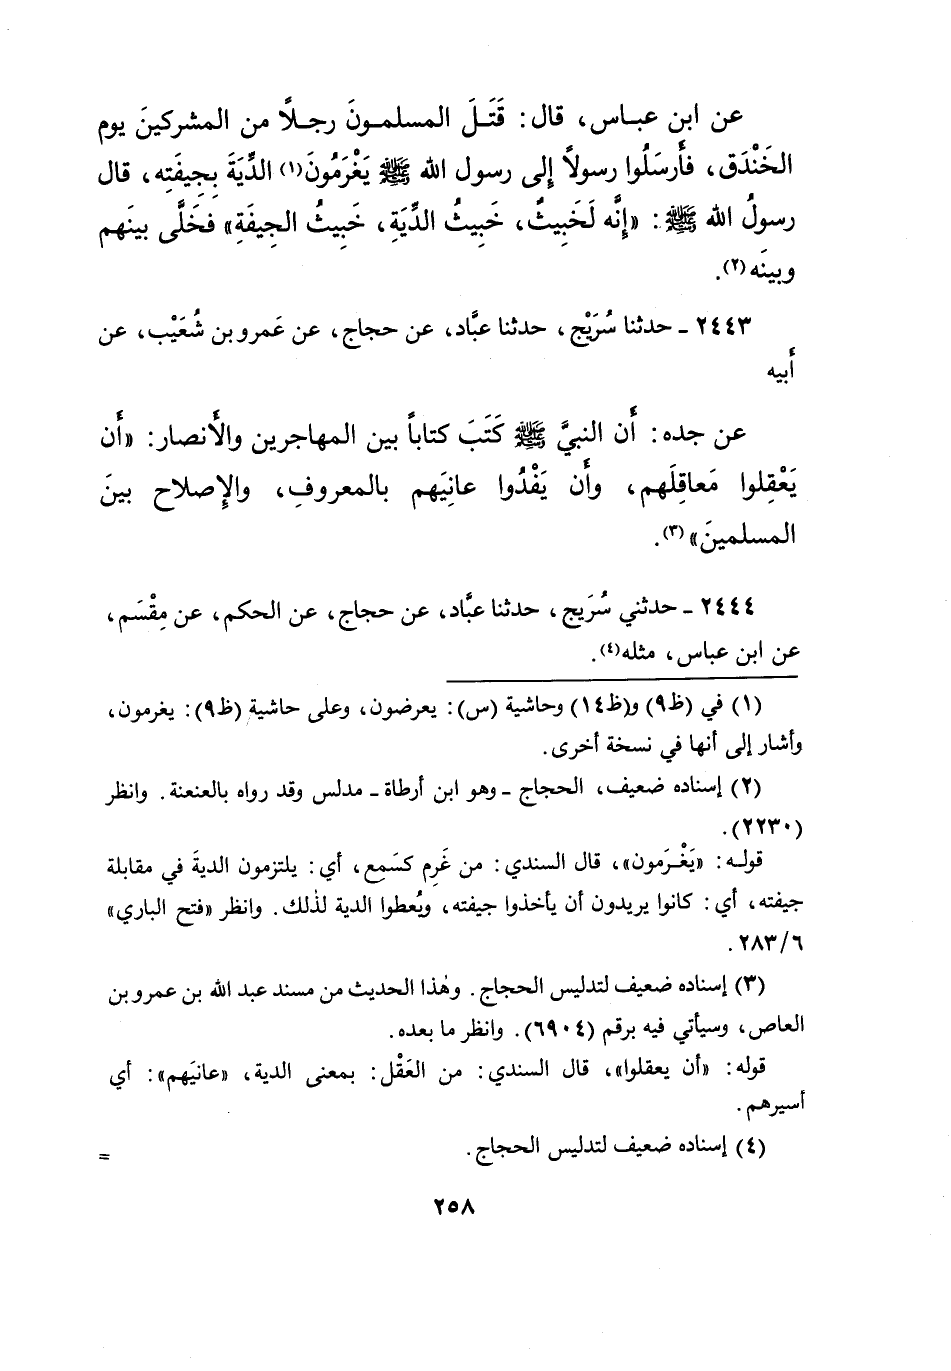 عن ابن عباس، قال: قَتَلَ المسلمونَ رجلاً من المشركينَ يوم
الخَنْدَق، فأَرسَلُوا رسولاً إلى رسول الله ﷺ يَغْرَمُونَ(١) الدِّيَةَ بِجِيفَتِه، قال
رسولُ الله ﷺ: «إنَّه لَخَبِيثٌ، خَبِيثُ الدِّيَةِ، خَبِيثُ الجِيفَةِ» فخَلَّى بينَهم
وبينَه(٢).
٢٤٤٣ ـ حدثنا سُرَيْج، حدثنا عبَّاد، عن حجاج، عن عَمرو بن شُعَيْب، عن
أَبيه
عن جده: أَن النبيَّ ﷺ كَتَبَ كتاباً بين المهاجرين والأَنصار: «أَن
يَعْقِلوا مَعاقِلَهم، وأَن يَفْدُوا عانِيَهم بالمعروفِ، والإصلاح بينَ
المسلمينَ»(٣).
٢٤٤٤ ـ حدثني سُرَيج، حدثنا عبَّاد، عن حجاج، عن الحكم، عن مِقْسَم،
عن ابن عباس، مثله(٤).
(١) في (ظ٩) و(ظ١٤) وحاشية (س): يعرضون، وعلى حاشية (ظ٩): يغرمون،
وأشار إلى أنها في نسخة أخرى.
(٢) إسناده ضعيف، الحجاج ـ وهو ابن أرطاة ـ مدلس وقد رواه بالعنعنة. وانظر
(٢٢٣٠).
قوله: «يَغْرَمون»، قال السندي: من غَرِم كسَمع، أي: يلتزمون الديةَ في مقابلة
جيفته، أي: كانوا يريدون أن يأخذوا جيفته، ويُعطوا الدية لذلك. وانظر «فتح الباري»
٢٨٣/٦.
(٣) إسناده ضعيف لتدليس الحجاج. وهٰذا الحديث من مسند عبد الله بن عمرو بن
العاص، وسيأتي فيه برقم (٦٩٠٤). وانظر ما بعده.
قوله: «أن يعقلوا»، قال السندي: من العَقْل: بمعنى الدية، «عانيَهم»: أي
أسيرهم.
(٤) إسناده ضعيف لتدليس الحجاج. =
٢٥٨